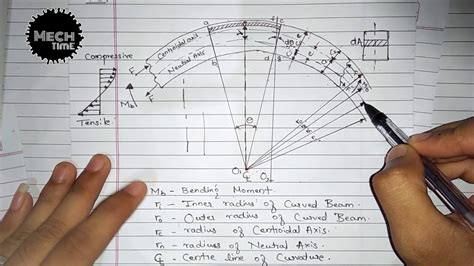 MECH
TIME
Compressive
Tensile
Mb
F
F
Centroidal axis
Neutral Axis
a
b
c
d
e
dA
θ
O1
O2
Mb - Bending Moment
ri - Inner radius of Curved Beam.
ro - Outer radius of Curved Beam.
rc radius of Centroidal Axis
rn - radius of Neutral Axis.
℄ - Centre line of Curvature